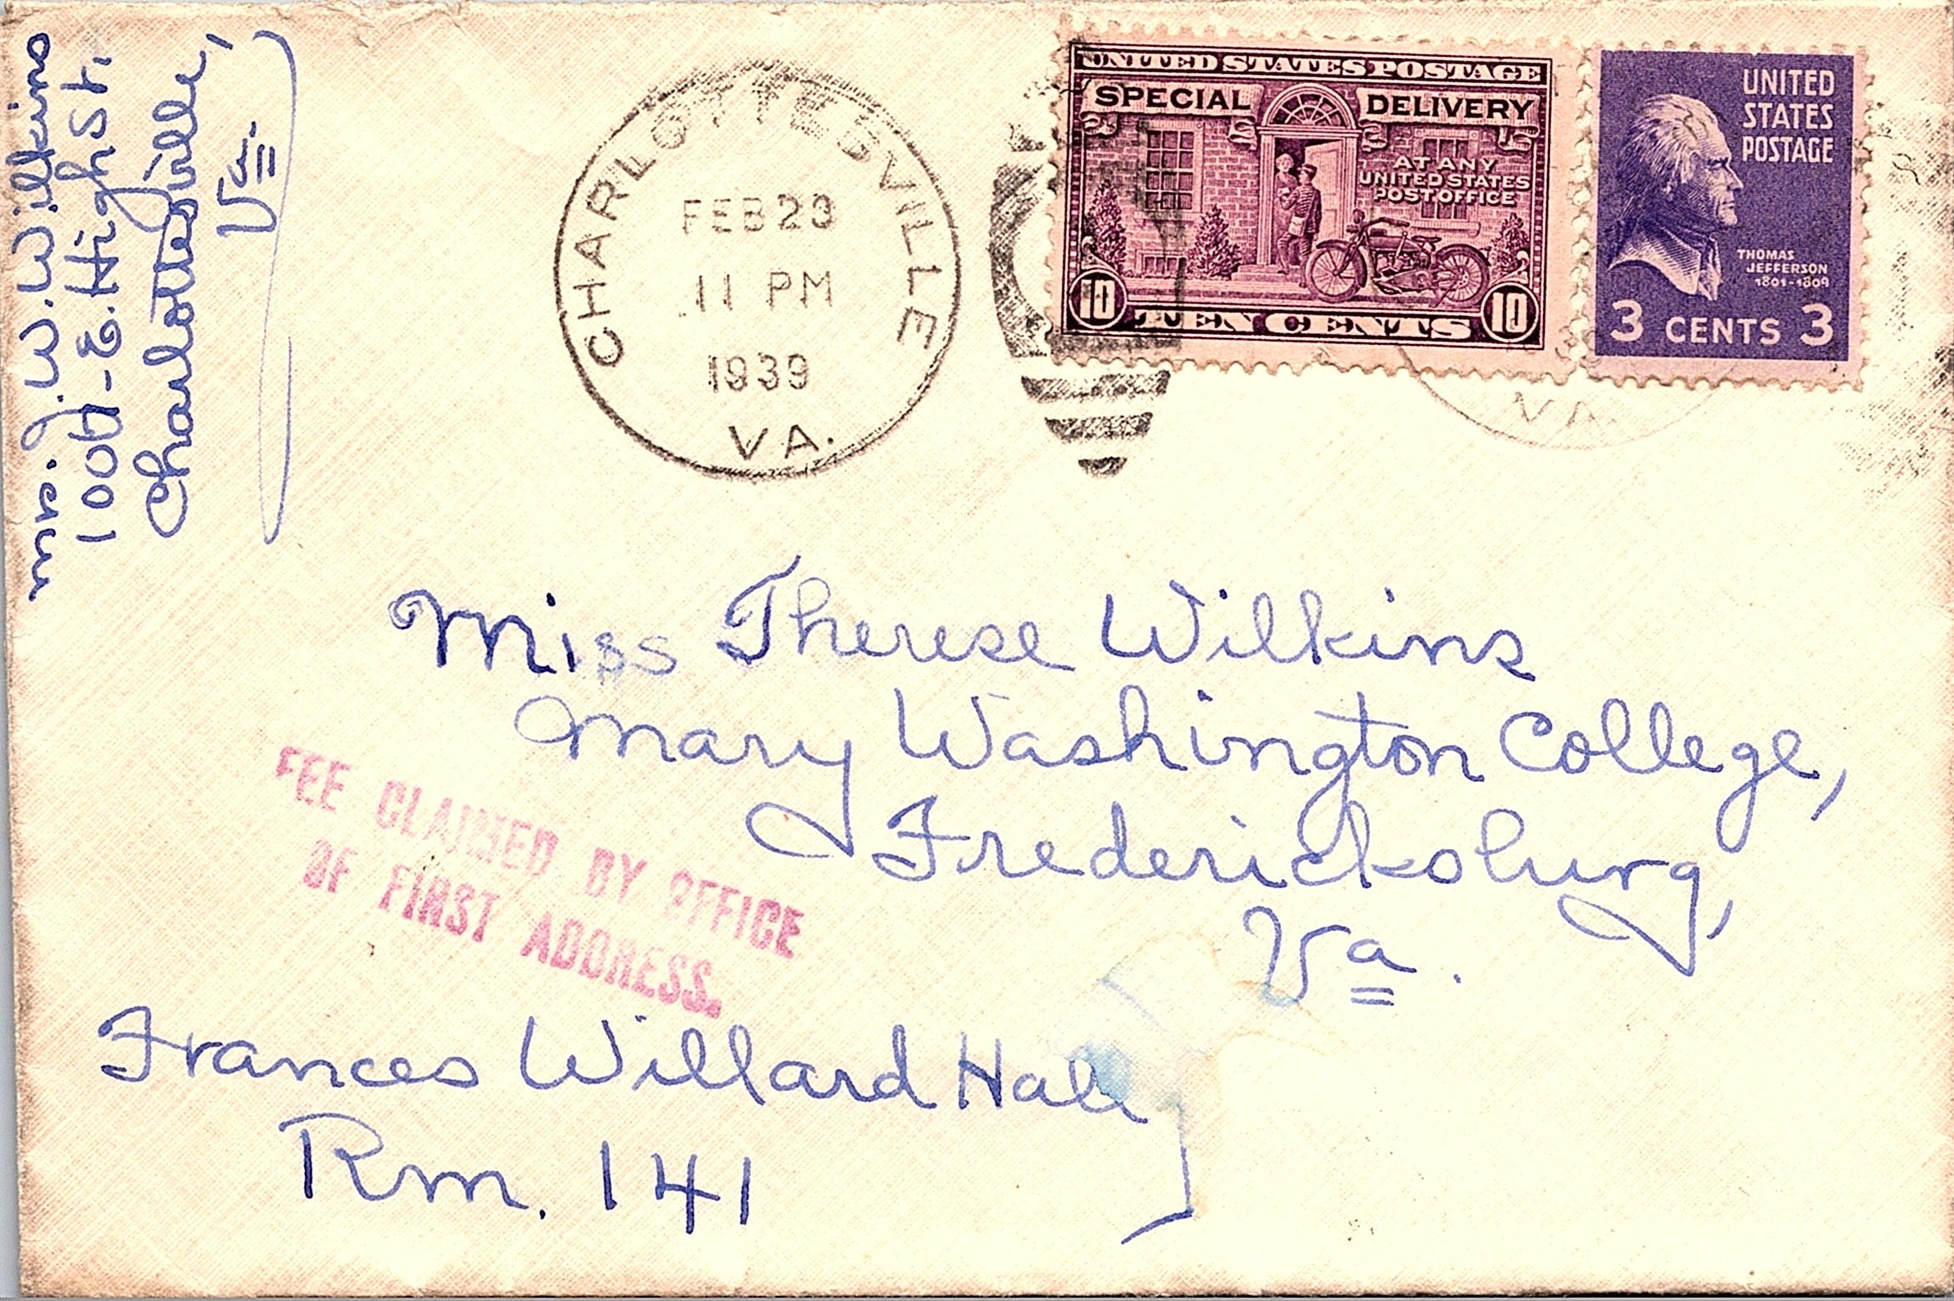 Mrs. J. W. Wilkins
1009-E. High St.
Charlottesville,
Va.
CHARLOTTESVILLE
FEB 23
11 PM
1939
VA.
UNITED STATES POSTAGE
SPECIAL DELIVERY
AT ANY
UNITED STATES
POST OFFICE
10 TEN CENTS 10
UNITED
STATES
POSTAGE
THOMAS
JEFFERSON
1801-1809
3 CENTS 3
VA.
Miss Therese Wilkins
Mary Washington College,
Fredericksburg,
Va.
FEE CLAIMED BY OFFICE
OF FIRST ADDRESS.
Frances Willard Hall
Rm. 141